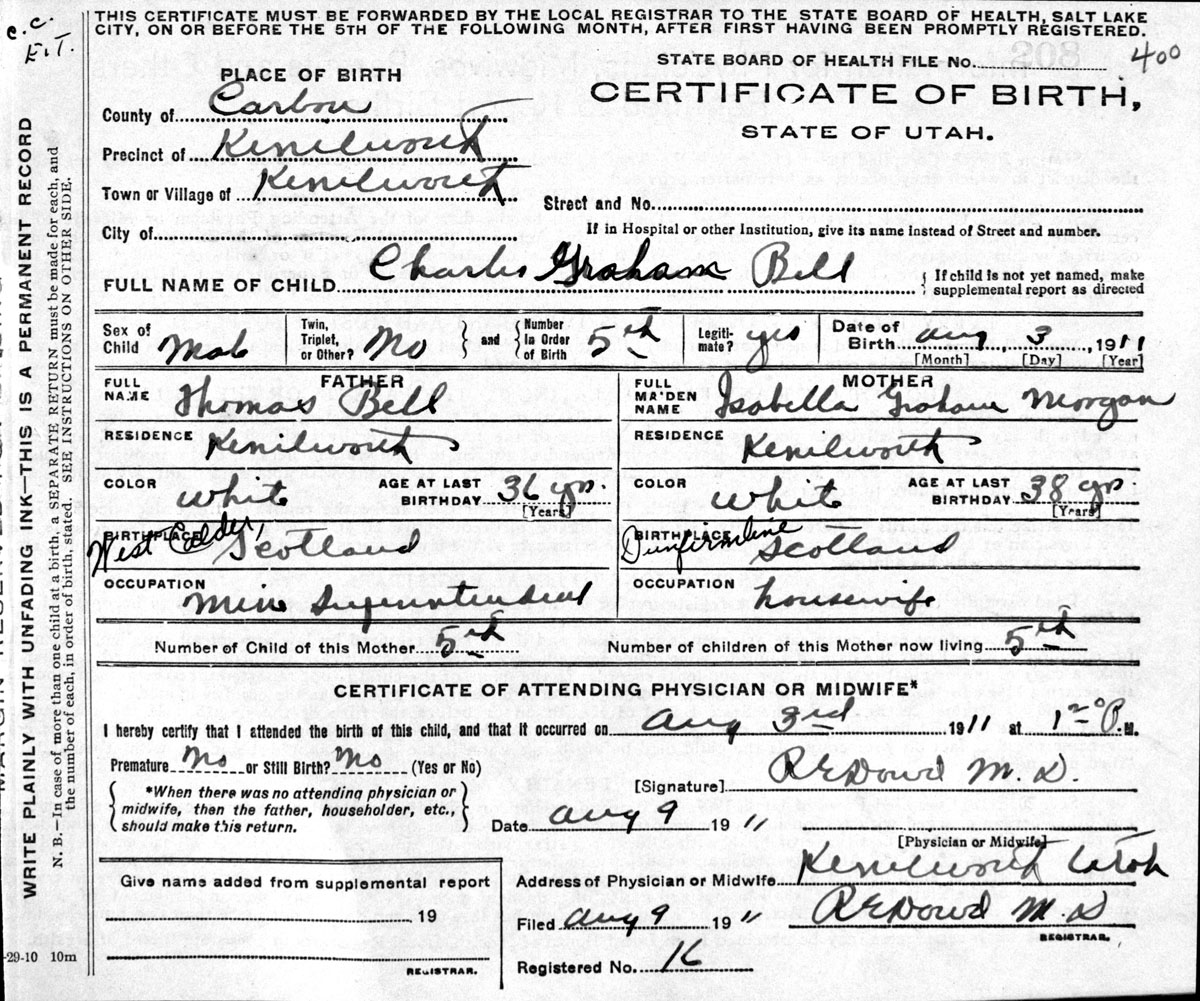 THIS CERTIFICATE MUST BE FORWARDED BY THE LOCAL REGISTRAR TO THE STATE BOARD OF HEALTH, SALT LAKE
CITY, ON OR BEFORE THE 5TH OF THE FOLLOWING MONTH, AFTER FIRST HAVING BEEN PROMPTLY REGISTERED.
e.c.
E.T.
STATE BOARD OF HEALTH FILE No. 400
PLACE OF BIRTH
CERTIFICATE OF BIRTH,
STATE OF UTAH.
County of Carbon
Precinct of Kenilworth
Town or Village of Kenilworth
Street and No.
City of
If in Hospital or other Institution, give its name instead of Street and number.
FULL NAME OF CHILD Charles Graham Bell
{ If child is not yet named, make
supplemental report as directed
Sex of Child Male
Twin, Triplet, or Other? No
and
Number in Order of Birth 5th
Legitimate? yes
Date of Birth Aug 3, 1911
[Month] [Day] [Year]
FATHER
FULL NAME Thomas Bell
RESIDENCE Kenilworth
COLOR White
AGE AT LAST BIRTHDAY 36 yrs.
[Years]
BIRTHPLACE West Calder, Scotland
OCCUPATION Mine Superintendent
MOTHER
FULL MAIDEN NAME Isabella Graham Morgan
RESIDENCE Kenilworth
COLOR White
AGE AT LAST BIRTHDAY 38 yrs
[Years]
BIRTHPLACE Dunfirmline Scotland
OCCUPATION housewife
Number of Child of this Mother 5th
Number of children of this Mother now living 5th
CERTIFICATE OF ATTENDING PHYSICIAN OR MIDWIFE*
I hereby certify that I attended the birth of this child, and that it occurred on Aug 3rd 1911 at 1 20 P. M.
Premature No or Still Birth? No (Yes or No)
[Signature] R E Dowd M. D.
*When there was no attending physician or
midwife, then the father, householder, etc.,
should make this return.
Date Aug 9 19 11
[Physician or Midwife]
Give name added from supplemental report
19
REGISTRAR.
Address of Physician or Midwife Kenilworth Utah
Filed Aug 9 19 11 R E Dowd M. D
REGISTRAR.
Registered No. 16
-29-10 10m
WRITE PLAINLY WITH UNFADING INK—THIS IS A PERMANENT RECORD
N. B.—In case of more than one child at a birth, a SEPARATE RETURN must be made for each, and
the number of each, in order of birth, stated. SEE INSTRUCTIONS ON OTHER SIDE.